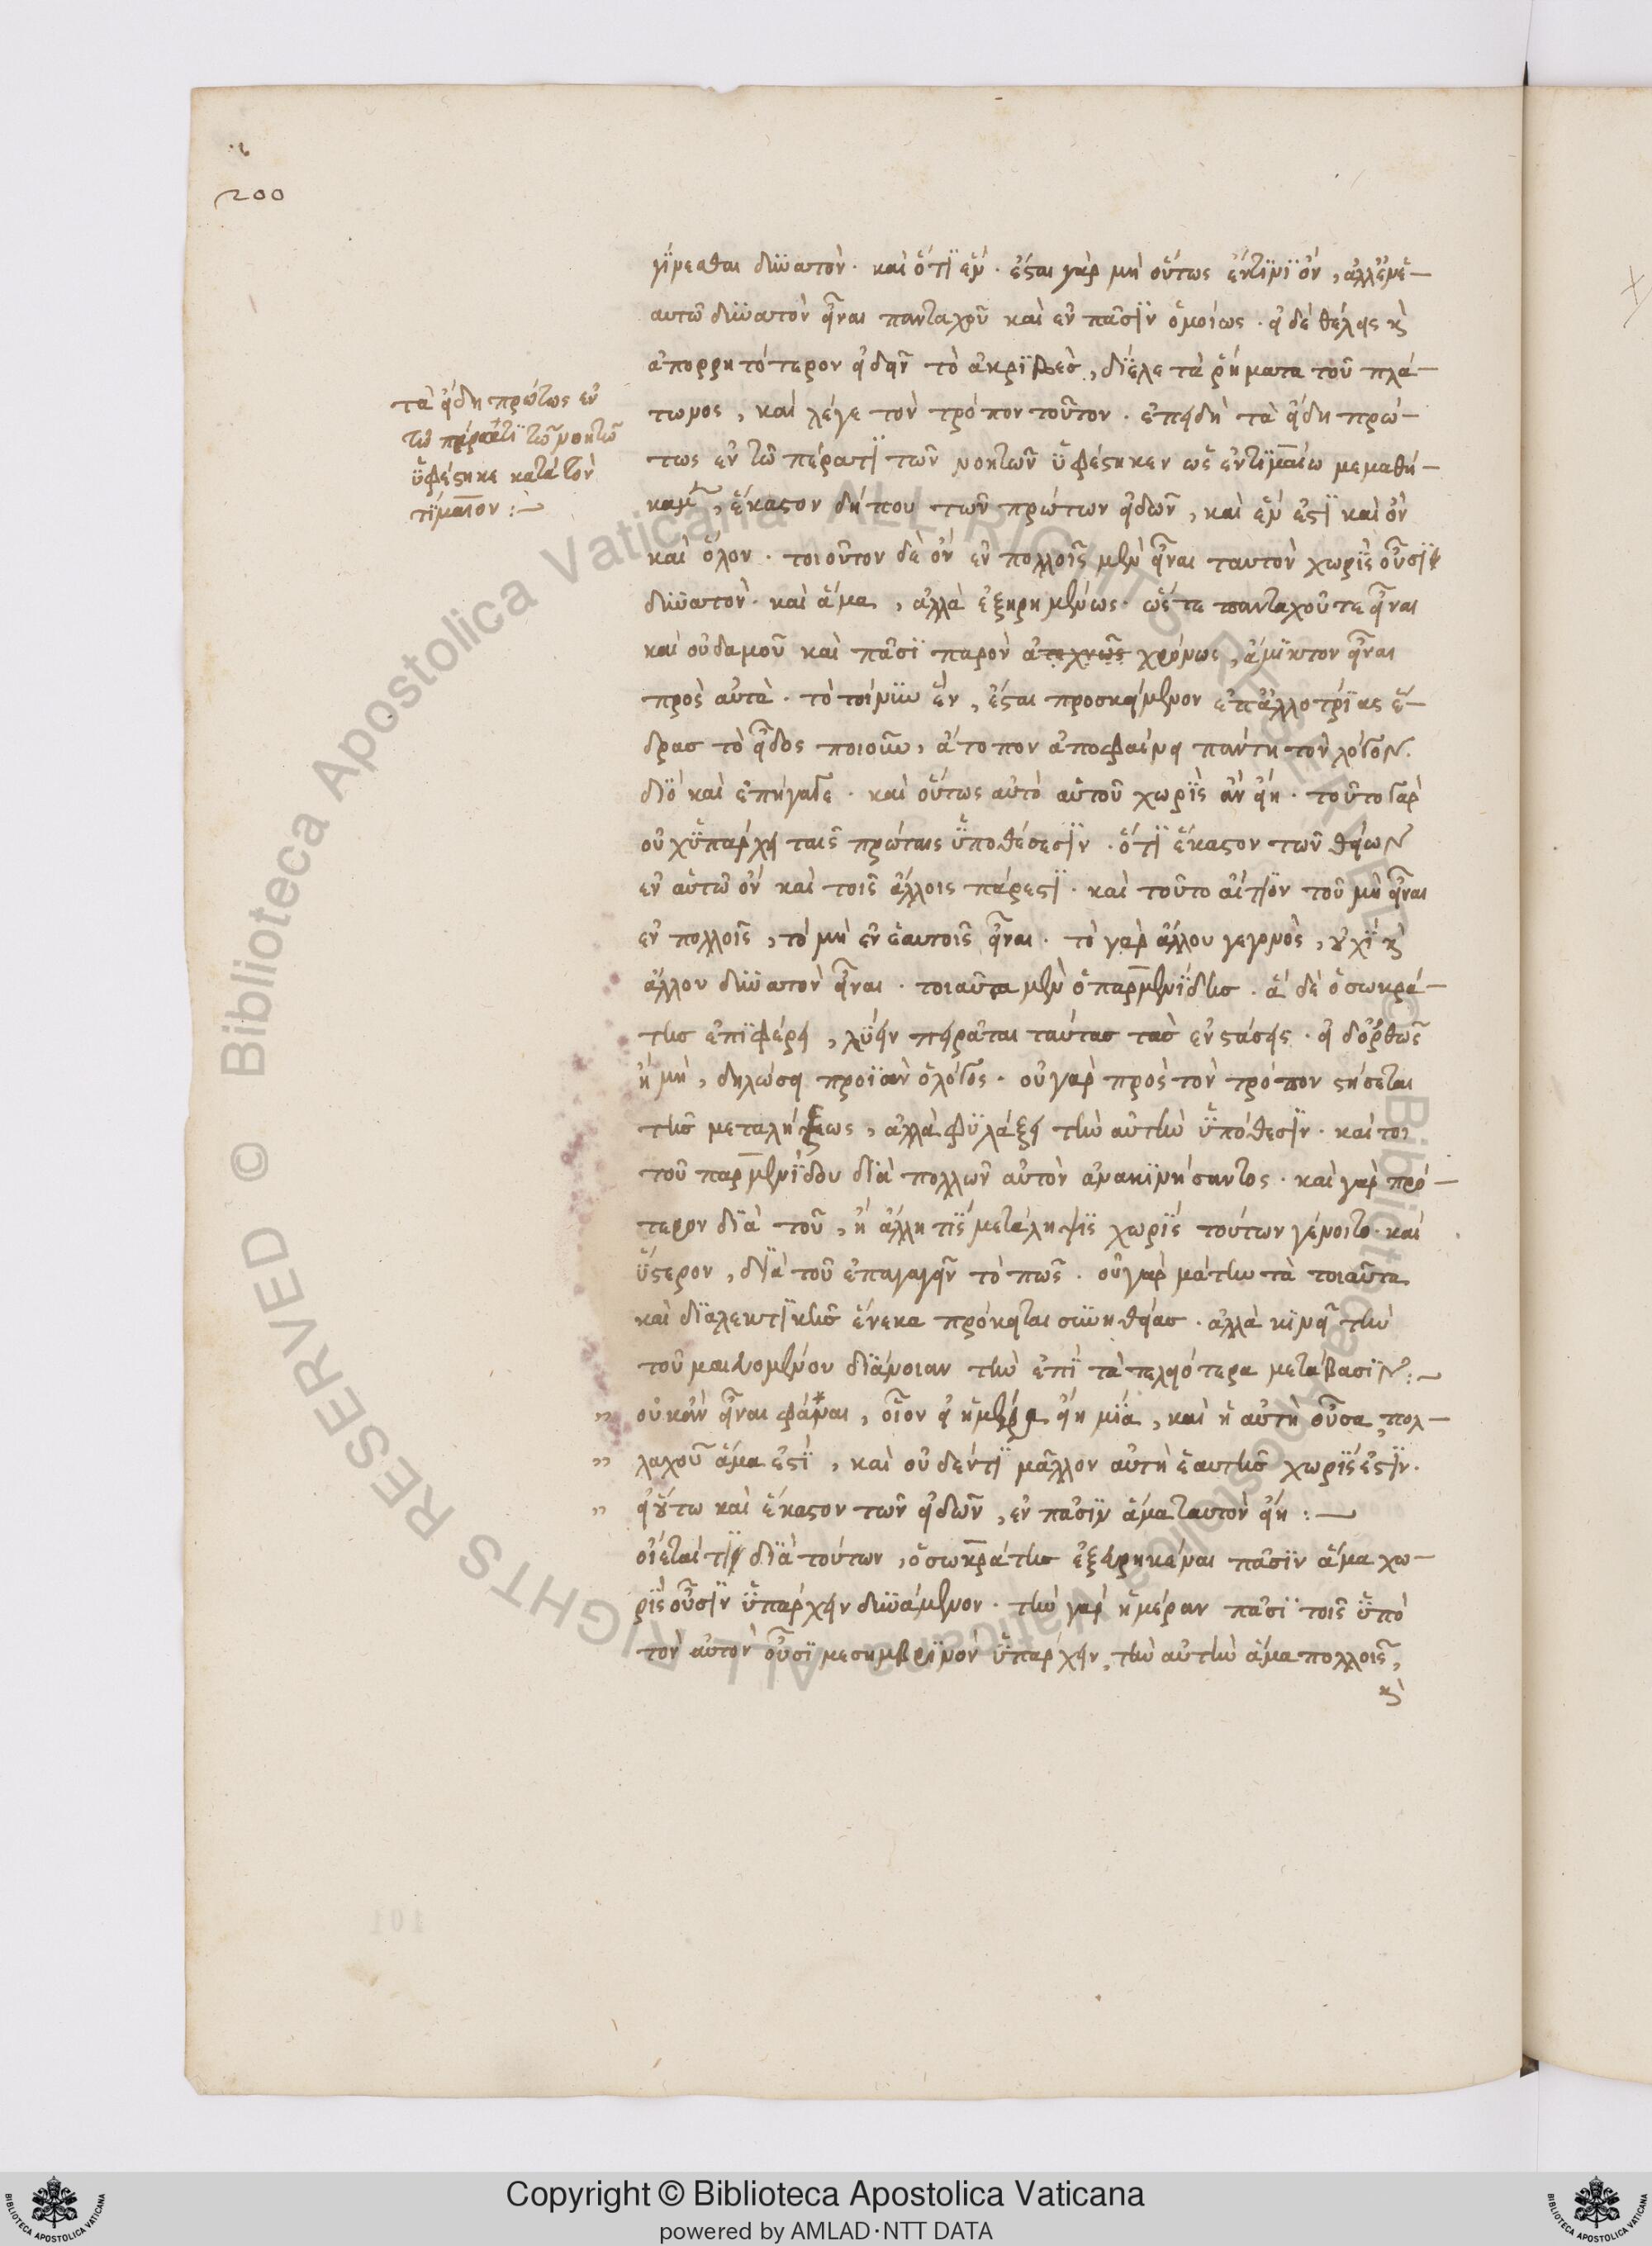 200
γίνεσθαι δυνατόν. καὶ ὅτι ἕν. ἔσται γὰρ μὴ οὕτως ἔν τινι ὄν, ἀλλ' ἐν ἑ-
αυτῶ δυνατὸν εἶναι πανταχοῦ καὶ ἐν πᾶσιν ὁμοίως. εἰ δὲ θέλεις κ(αὶ)
ἀπορρητότερον εἰδεῖν τὸ ἀκριβὲς, δίελε τὰ ῥήματα τοῦ πλά-
τωνος, καὶ λέγε τὸν τρόπον τοῦτον. ἐπειδὴ τὰ εἴδη πρώ-
τως ἐν τῶ πέρατι τῶν νοητῶν ὑφέστηκεν ὡς ἐν τιμαίω μεμαθή-
καμεν, ἕκαστον δήπου τῶν πρώτων εἰδῶν, καὶ ἕν ἐστι καὶ ὂν
καὶ ὅλον. τοιοῦτον δὲ ὂν ἐν πολλοῖς μὲν εἶναι ταυτὸν χωρὶς οὖσιν
δυνατὸν. καὶ ἅμα, ἀλλὰ ἐξηρημένως. ὥστε πανταχοῦ τε εἶναι
καὶ οὐδαμοῦ καὶ πᾶσι παρὸν ἀτεχνῶς χρόνως, ἄμικτον εἶναι
πρὸς αὐτὰ. τὸ τοίνυν ἓν, ἔσται προσκείμενον ἐπ' ἀλλοτρίας ἕ-
δρας τὸ εἶδος ποιοῦν, ἄτοπον ἀποφαίνει πάντη τὸν λόγον.
διὸ καὶ ἐπήγαγε. καὶ οὕτως αὐτὸ αὑτοῦ χωρὶς ἂν εἴη. τοῦτο γὰρ
οὐχ ὑπάρχει ταῖς πρώταις ὑποθέσεσιν. ὅτι ἕκαστον τῶν θείων
ἐν αὑτῶ ὂν καὶ τοῖς ἄλλοις πάρεστι. καὶ τοῦτο αἴτιον τοῦ μὴ εἶναι
ἐν πολλοῖς, τὸ μὴ ἐν ἑαυτοῖς εἶναι. τὸ γὰρ ἄλλου γεγονὸς, οὐχὶ κ(αὶ)
ἄλλου δυνατὸν εἶναι. τοιαῦτα μὲν ὁ παρμενίδης. ἃ δὲ ὁ σωκρά-
της ἐπιφέρει, λύειν πειρᾶται ταύτας τὰς ἐνστάσεις. εἰ δ' ὀρθῶς
ἢ μὴ, δηλώσει προϊὼν ὁ λόγος. οὐ γὰρ πρὸς τὸν τρόπον στήσεται
τῆς μεταλήξεως, ἀλλὰ φυλάξει τὴν αὐτὴν ὑπόθεσιν. καίτοι
τοῦ παρμενίδου διὰ πολλῶν αὐτὸν ἀνακινήσαντος. καὶ γὰρ πρό-
τερον διὰ τοῦ, ἢ ἄλλη τίς μετάληψις χωρὶς τούτων γένοιτο. καὶ
ὕστερον, διὰ τοῦ ἐπαγαγεῖν τὸ πῶς. οὐ γὰρ μάτην τὰ τοιαῦτα
καὶ διαλεκτικῆς ἕνεκα πρόκειται συνηθείας. ἀλλὰ κινεῖ τὴν
τοῦ μαιευομένου διάνοιαν τὴν ἐπὶ τὰ τελειότερα μετάβασιν:-
οὐκ ἂν εἶναι φάναι, οἷον εἰ ἡμέρα εἴη μία, καὶ ἡ αὐτὴ οὖσα, πολ-
λαχοῦ ἅμα ἐστὶ, καὶ οὐδέν τι μᾶλλον αὐτὴ ἑαυτῆς χωρίς ἐστιν.
εἰ οὕτω καὶ ἕκαστον τῶν εἰδῶν, ἐν πᾶσιν ἅμα ταυτὸν εἴη:-
οἴεταί τι διὰ τούτων, ὁ σωκράτης ἐξευρηκέναι πᾶσιν ἅμα χω-
ρὶς οὖσιν ὑπάρχειν δυνάμενον. τὴν γὰρ ἡμέραν πᾶσι τοῖς ὑπὸ
τὸν αὐτὸν οὖσι μεσημβρινὸν ὑπάρχειν, τὴν αὐτὴν ἅμα πολλοῖς,
κ(αὶ)
τὰ εἴδη πρώτως ἐν
τῶ πέρατι τῶν νοητῶν
ὑφέστηκε κατὰ τὸν
τίμαιον:-
101
Biblioteca Apostolica Vaticana ALL RIGHTS RESERVED ©
Copyright © Biblioteca Apostolica Vaticana
powered by AMLAD·NTT DATA
BIBLIOTECA APOSTOLICA VATICANA
BIBLIOTECA APOSTOLICA VATICANA